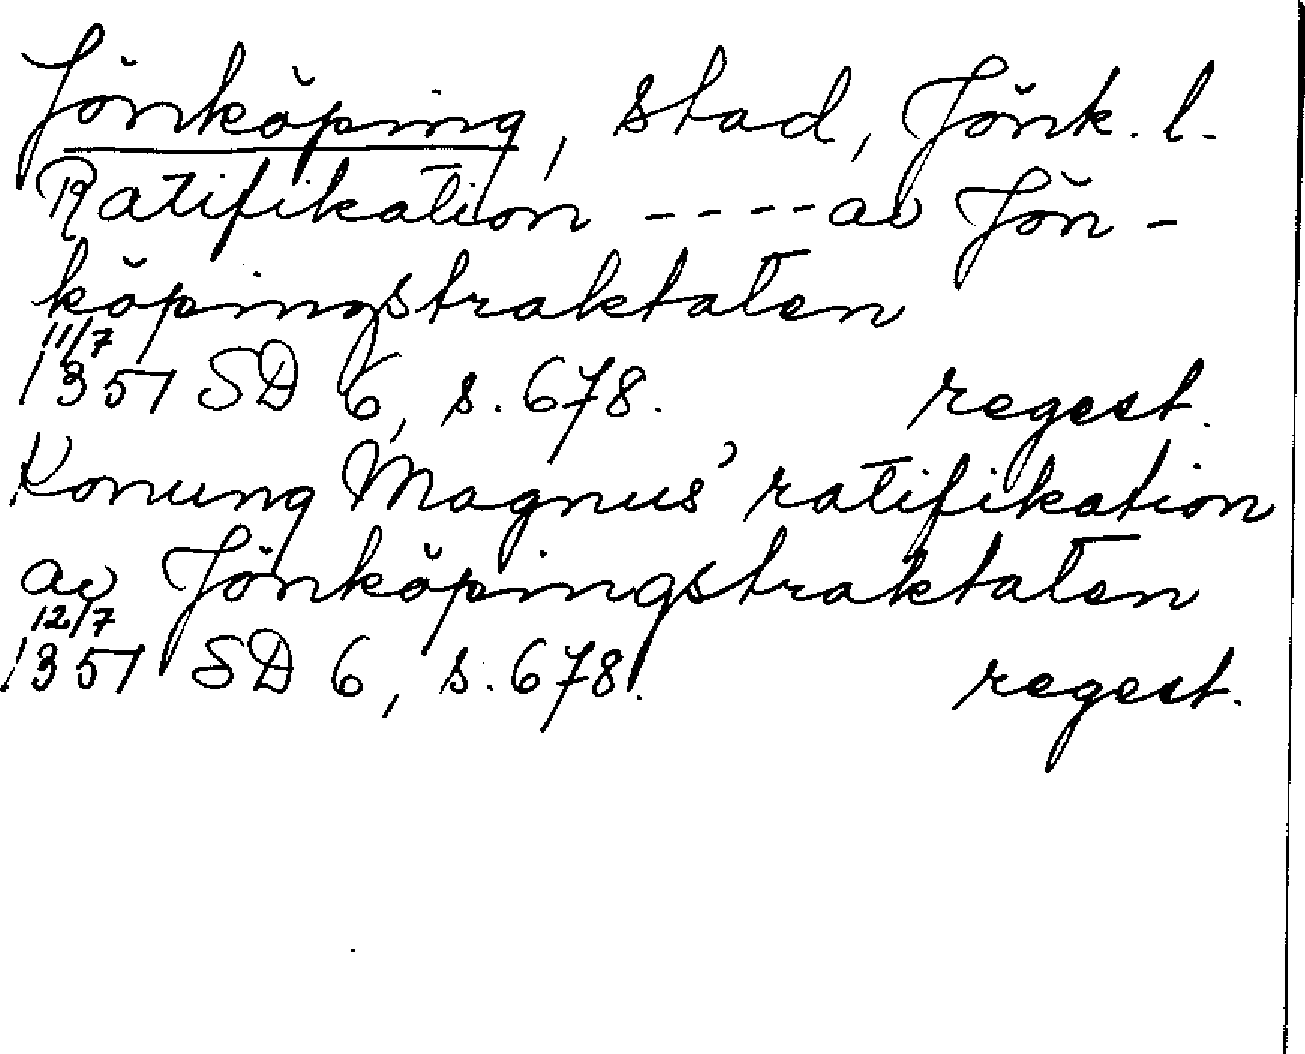 Jönköping, stad, Jönk. l.
Ratifikation ---- av Jön-
köpingstraktaten
11/7
1357 SD 6, s. 678. regest.
Konung Magnus' ratifikation
av Jönköpingstraktaten
12/7
1357 SD 6, s. 678. regest.